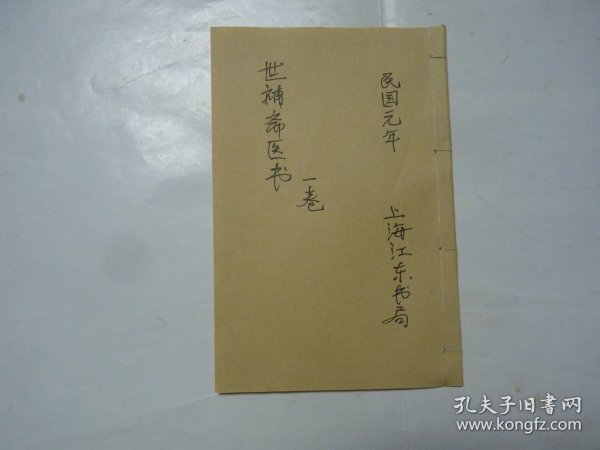 民国元年
上海江东书局
世補斋医书
一卷
孔夫子旧書网
www.kongfz.com